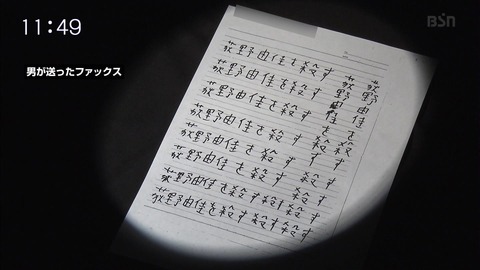 11:49
BSN
男が送ったファックス
荻野由佳を殺す
荻野由佳を殺す
荻野由佳を殺す
荻野由佳を殺す
荻野由佳を殺す
荻野由佳を殺す
荻野由佳を殺す殺す殺す
荻野由佳を殺す殺す殺す
荻野由佳を殺す
荻野由佳を殺す